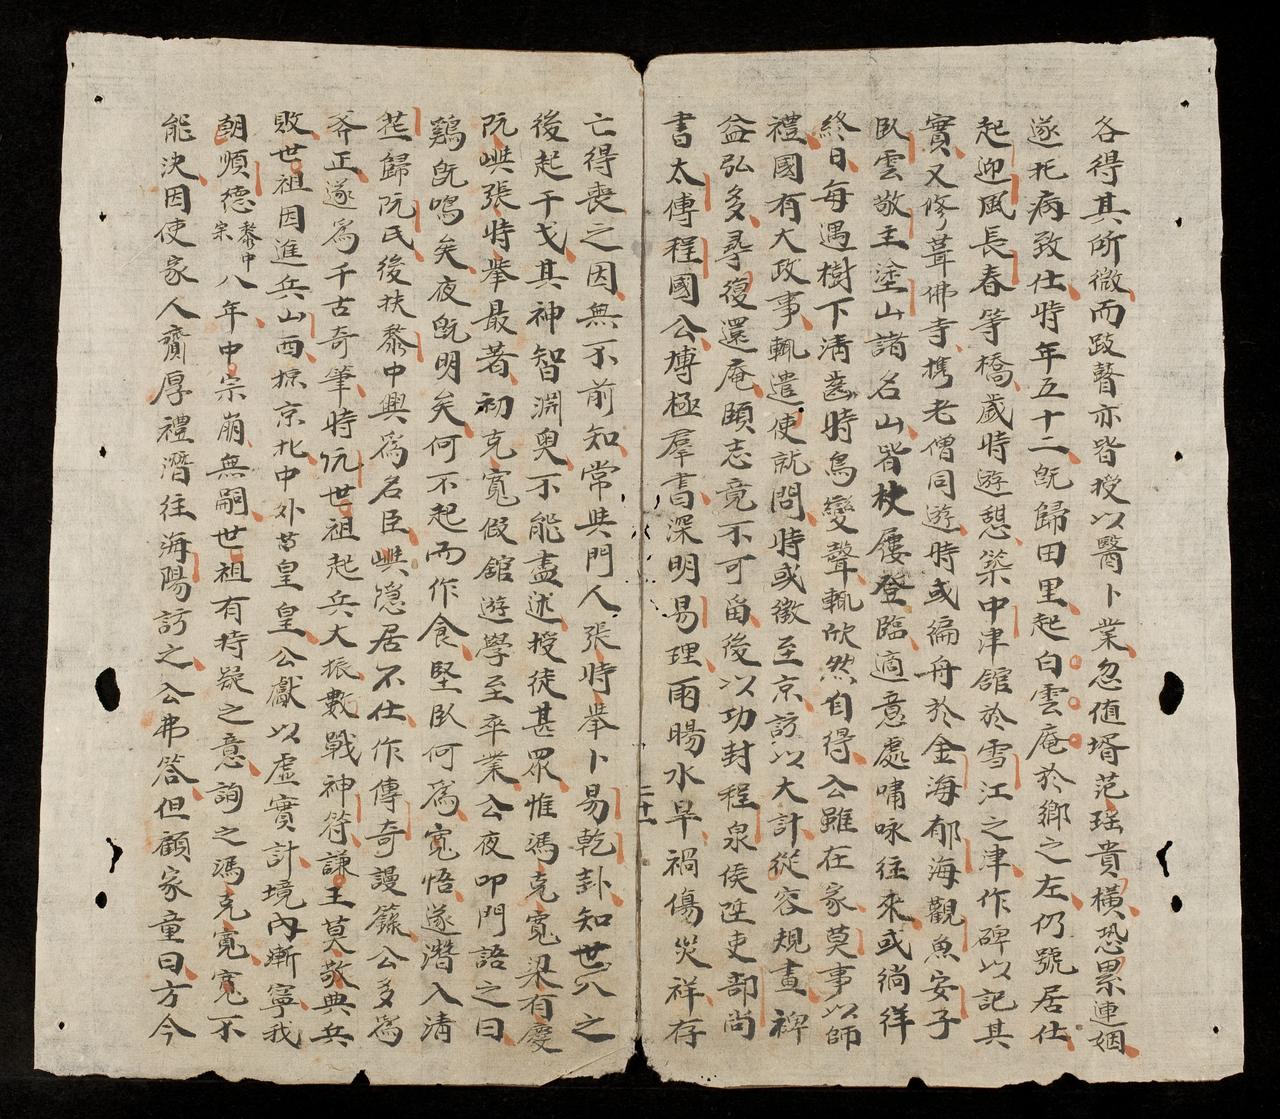 各得其所微而跛瞽亦皆授以醫卜業忽值壻范瑶貴橫恐累連姻
遂托病致仕時年五十二既歸田里起白雲庵於鄉之左仍號居仕
起迎風長春等橋歲時遊憩築中津舘於雪江之津作碑以記其
實又修葺佛寺携老僧同遊時或編舟於金海郁海觀魚安子
臥雲敬主塗山諸名山皆杖屨登臨適意處嘯咏往來或徜徉
終日每遇樹下清 時鳥變聲輒欣然自得公雖在家莫事以師
禮國有大政事輒遣使就問時或徵至京訪以大計從容規畫裨
益弘多尋復還庵頤志竟不可留後以功封程泉侯陞吏部尚
書太傅程國公博極羣書深明易理雨暘水旱禍傷災祥存
二十一
亡得喪之因無不前知常與門人張時舉卜易乾卦知世八之
後起干戈其神智淵奥不能盡述授徒甚眾惟馮克寬梁有慶
阮嶼張時舉最著初克寬假舘遊學至卒業公夜叩門語之曰
鷄既鳴矣夜既明矣何不起而作食堅臥何爲寬悟遂潛入清
花歸阮民後扶黎中興爲名臣嶼隐居不仕作傳奇謾籙公多爲
斧正遂爲千古奇筆時阮世祖起兵大振數戰神符謙王莫敬典兵
敗世祖因進兵山西掠京北中外苦皇皇公獻以虚實計境內漸寧我
朝順德黎中宗八年中宗崩無嗣世祖有持疑之意詢之馮克寬寬不
能決因使家人齎厚禮潛往海陽訪之公弗答但顧家童曰方今